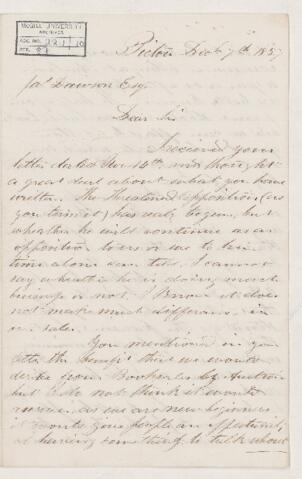 McGILL UNIVERSITY
ARCHIVES
ACC. NO.
REF.
Pictou Dec 7th 1857
Jas Dawson Esq.
Dear Sir
I received your
letter dated Nov 14th and thought
a great deal about what you have
written. The threatened opposition (as
you term it) has really begun, but
whether he will continue as an
opposition to us or us to him
time alone can tell. I cannot
say whether he is doing much
business or not. I know it does
not make much difference in
our sales.
You mentioned in your
letter the benefit that we would
derive from Book sales by Auction
but I do not think it would
answer, as we are new beginners
it would give people an
at having something to talk about